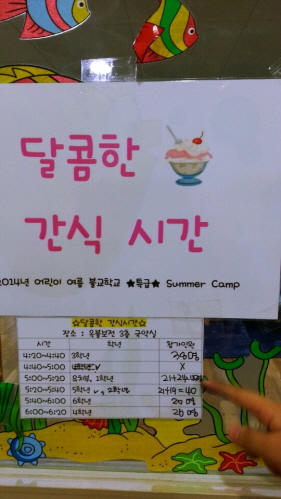 달콤한
간식 시간
2014년 어린이 여름 불교학교 ★특급★ Summer Camp
☆달콤한 간식시간☆
장소 : 옥불보전 3층 국악실
시간 학년 참가인원
4:20~4:40 3학년 38명
4:40~5:00 X
5:00~5:20 유치부, 1학년 21+24
5:20~5:40 5학년 , 2학년 21+19=40
5:40~6:00 6학년 20명
6:00~6:20 4학년